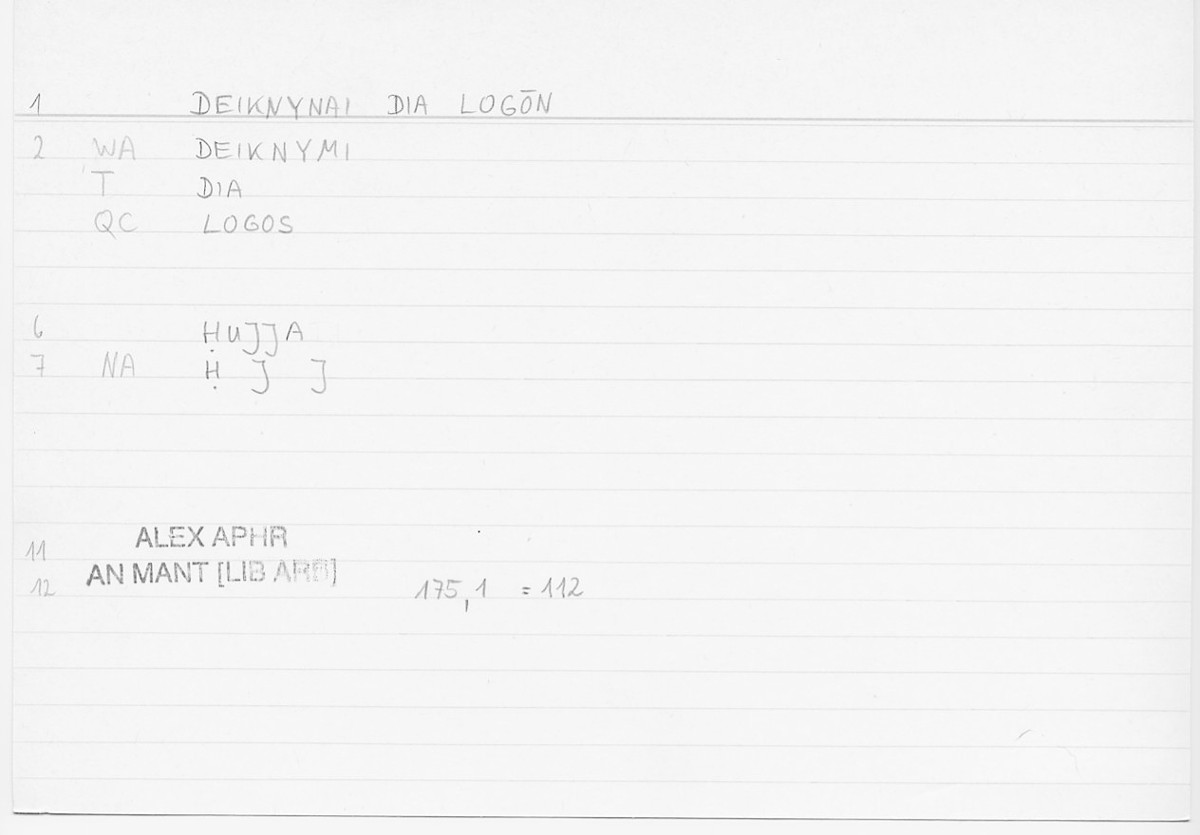 1 DEIKNYNAI DIA LOGŌN
2 WA DEIKNYMI
'T DIA
QC LOGOS
6 ḤUJJA
7 NA Ḥ J J
11 ALEX APHR
12 AN MANT [LIB ARB] 175,1 = 112